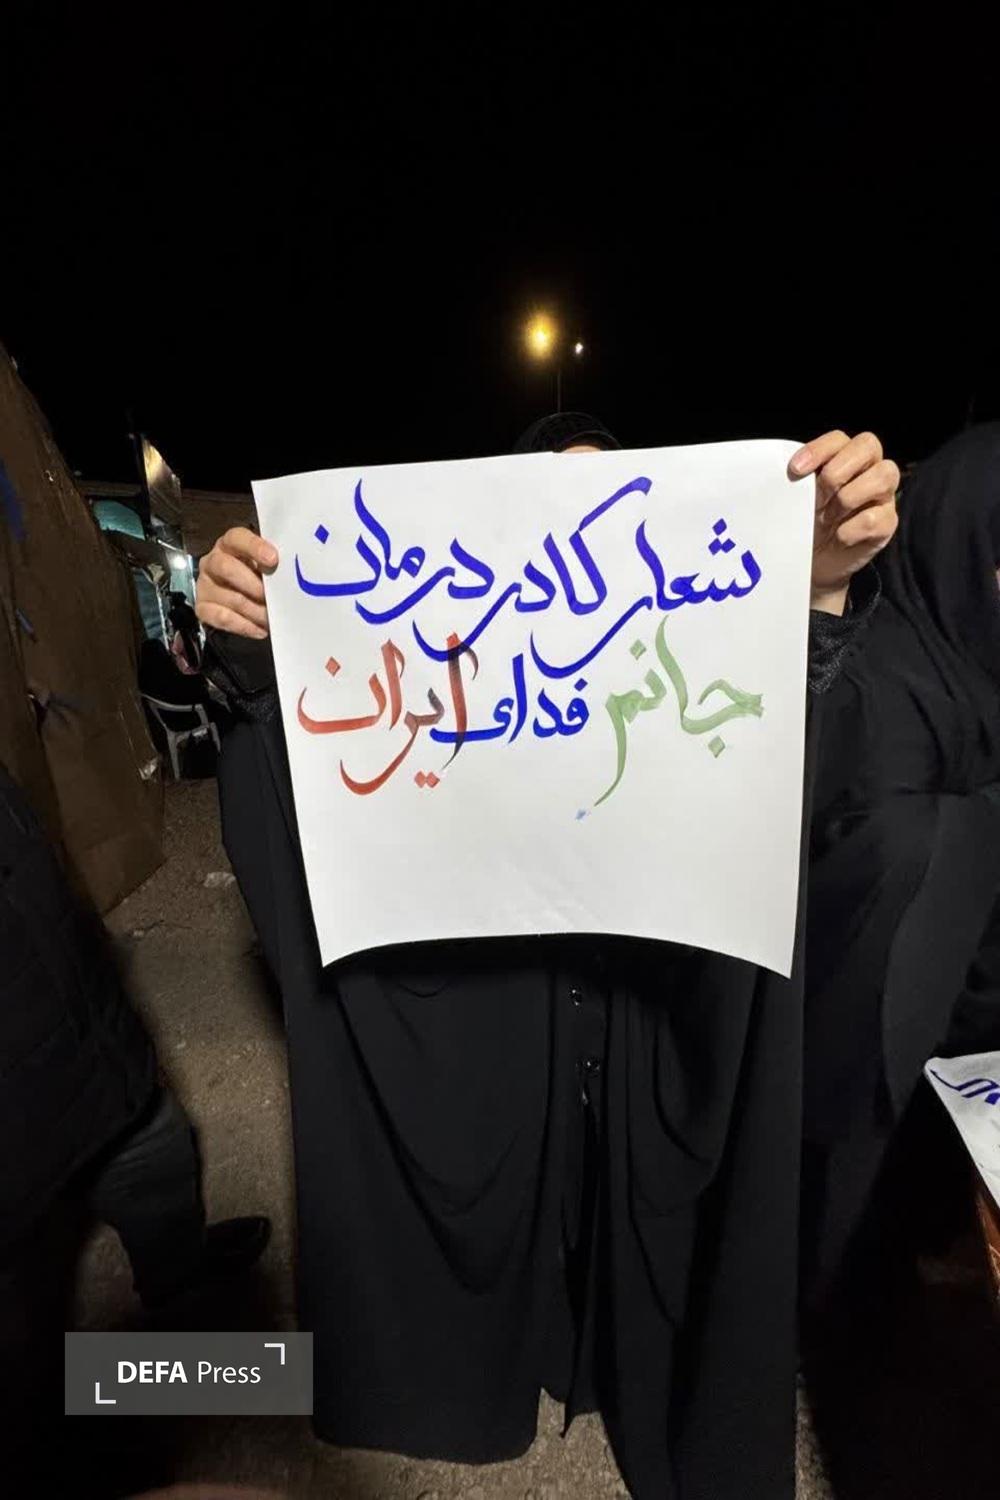 شعار کادر درمان
جانم فدای ایران
DEFA Press